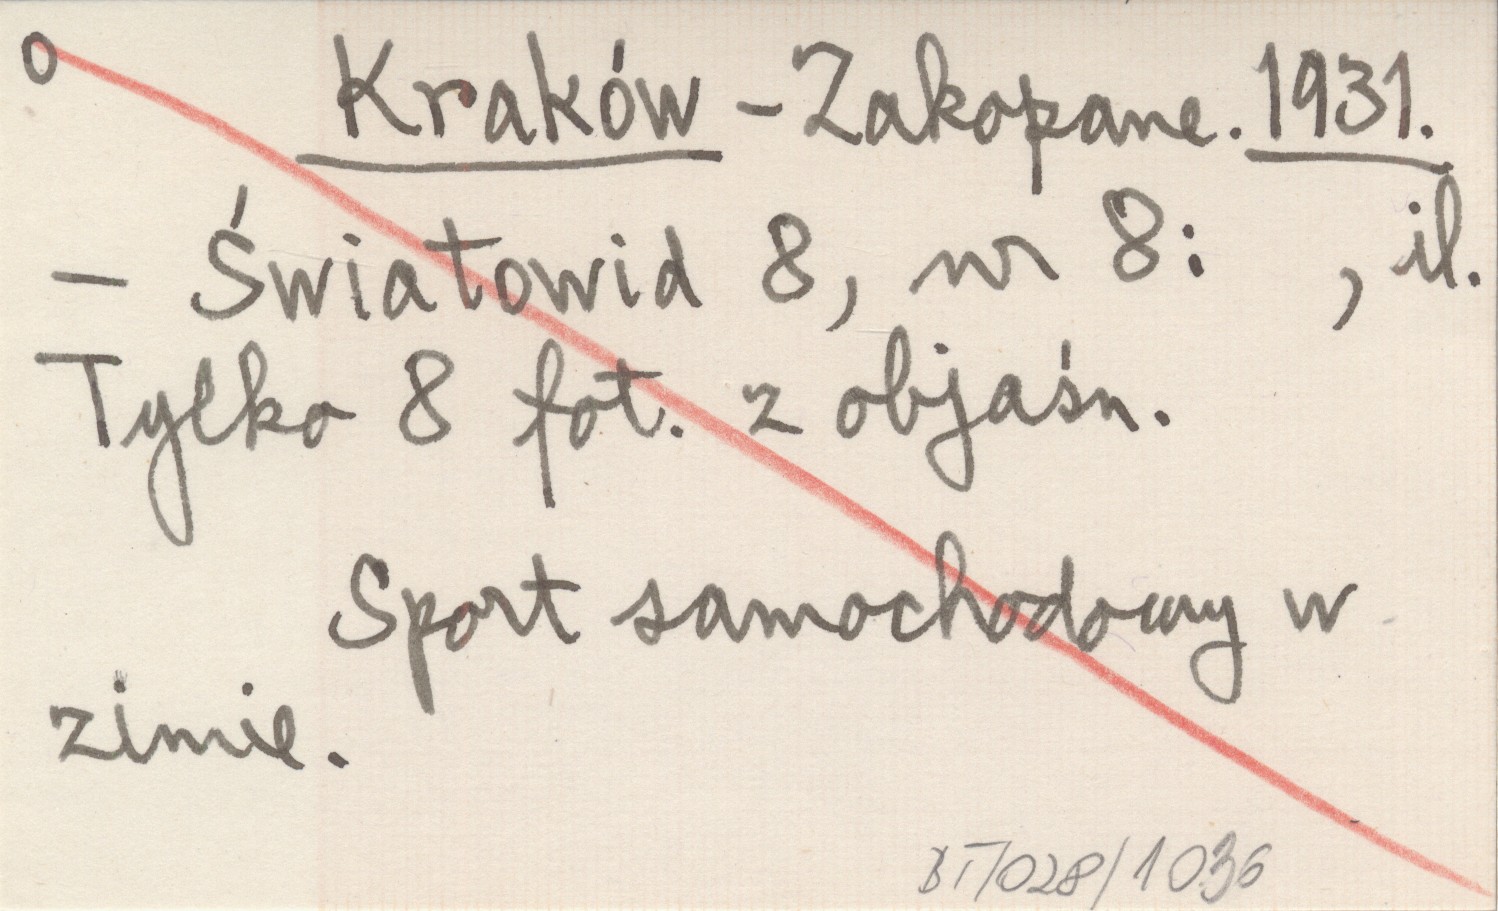 o Kraków - Zakopane. 1931.
- Światowid 8, nr 8: , il.
Tylko 8 fot. z objaśn.
Sport samochodowy w
zimie.
BT/028/1036